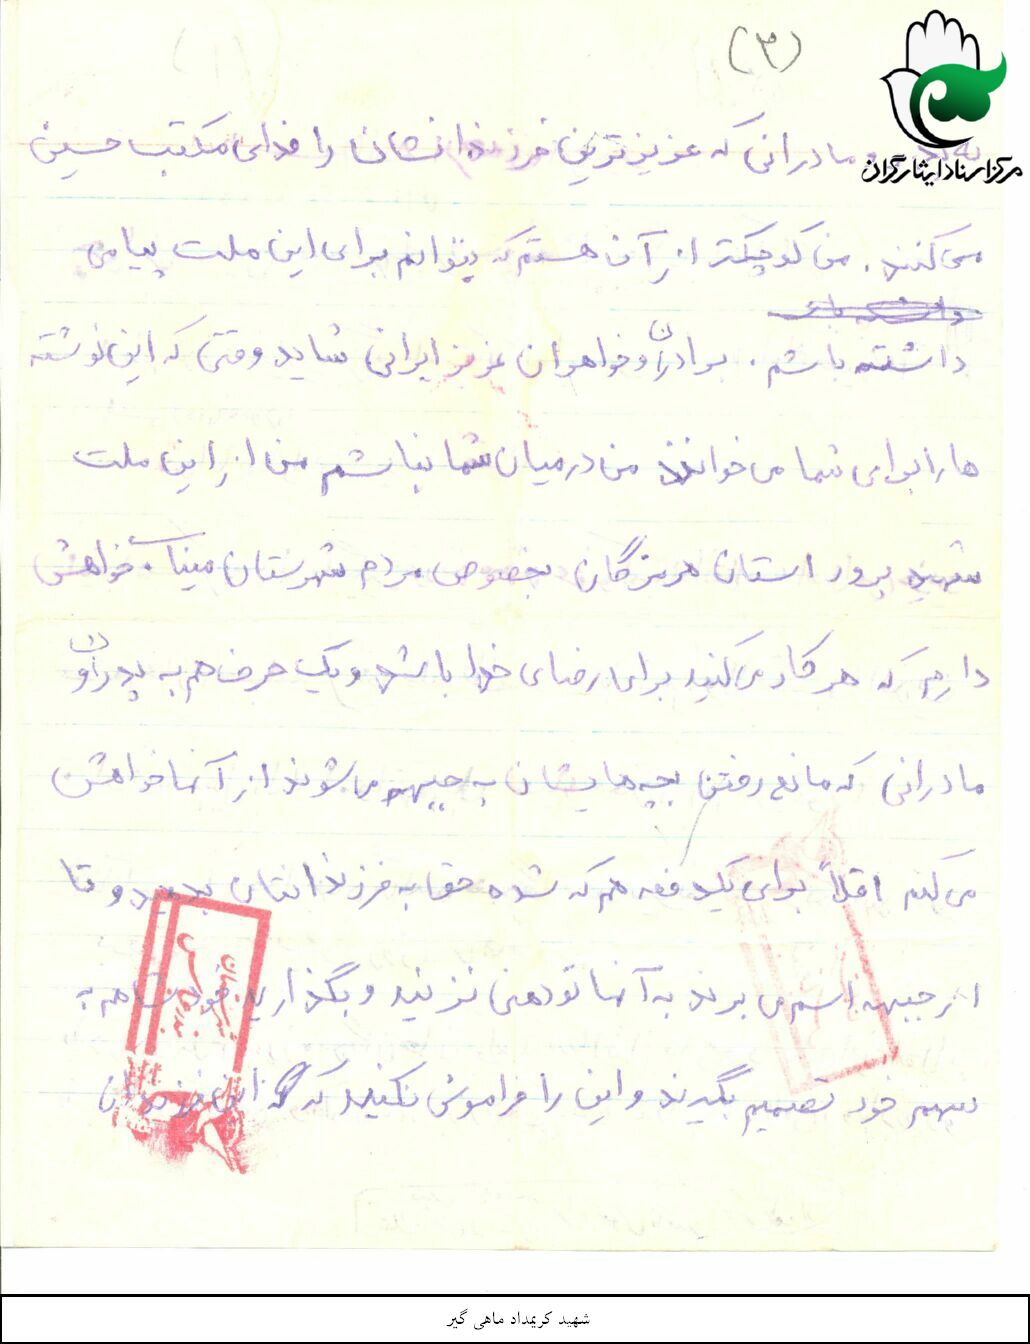 (۳)
مرکز اسناد ایثارگران
و مادرانی که عزیزترین فرزندانشان را فدای مکتب حسین
می کنند. من کوچکتر از آن هستم که بتوانم برای این ملت پیامی
داشته باشم. برادران و خواهران عزیز ایرانی شاید وقتی که این نوشته
ها را برای شما می خوانند من در میان شما نباشم من از این ملت
شهید پرور استان هرمزگان بخصوص مردم شهرستان میناب خواهش
دارم که هر کار می کنید برای رضای خدا باشد و یک حرف هم به پدران و
مادرانی که مانع رفتن بچه هایشان به جبهه می شوند از آنها خواهش
می کنم اقلاً برای یکدفعه هم که شده حق به فرزندانتان بدهید و تا
از جبهه اسم می برند به آنها تو دهنی نزنید و بگذارید خودشان هم به
سهم خود تصمیم بگیرند و این را فراموش نکنید که این فرزندان
شهید کریمداد ماهی گیر